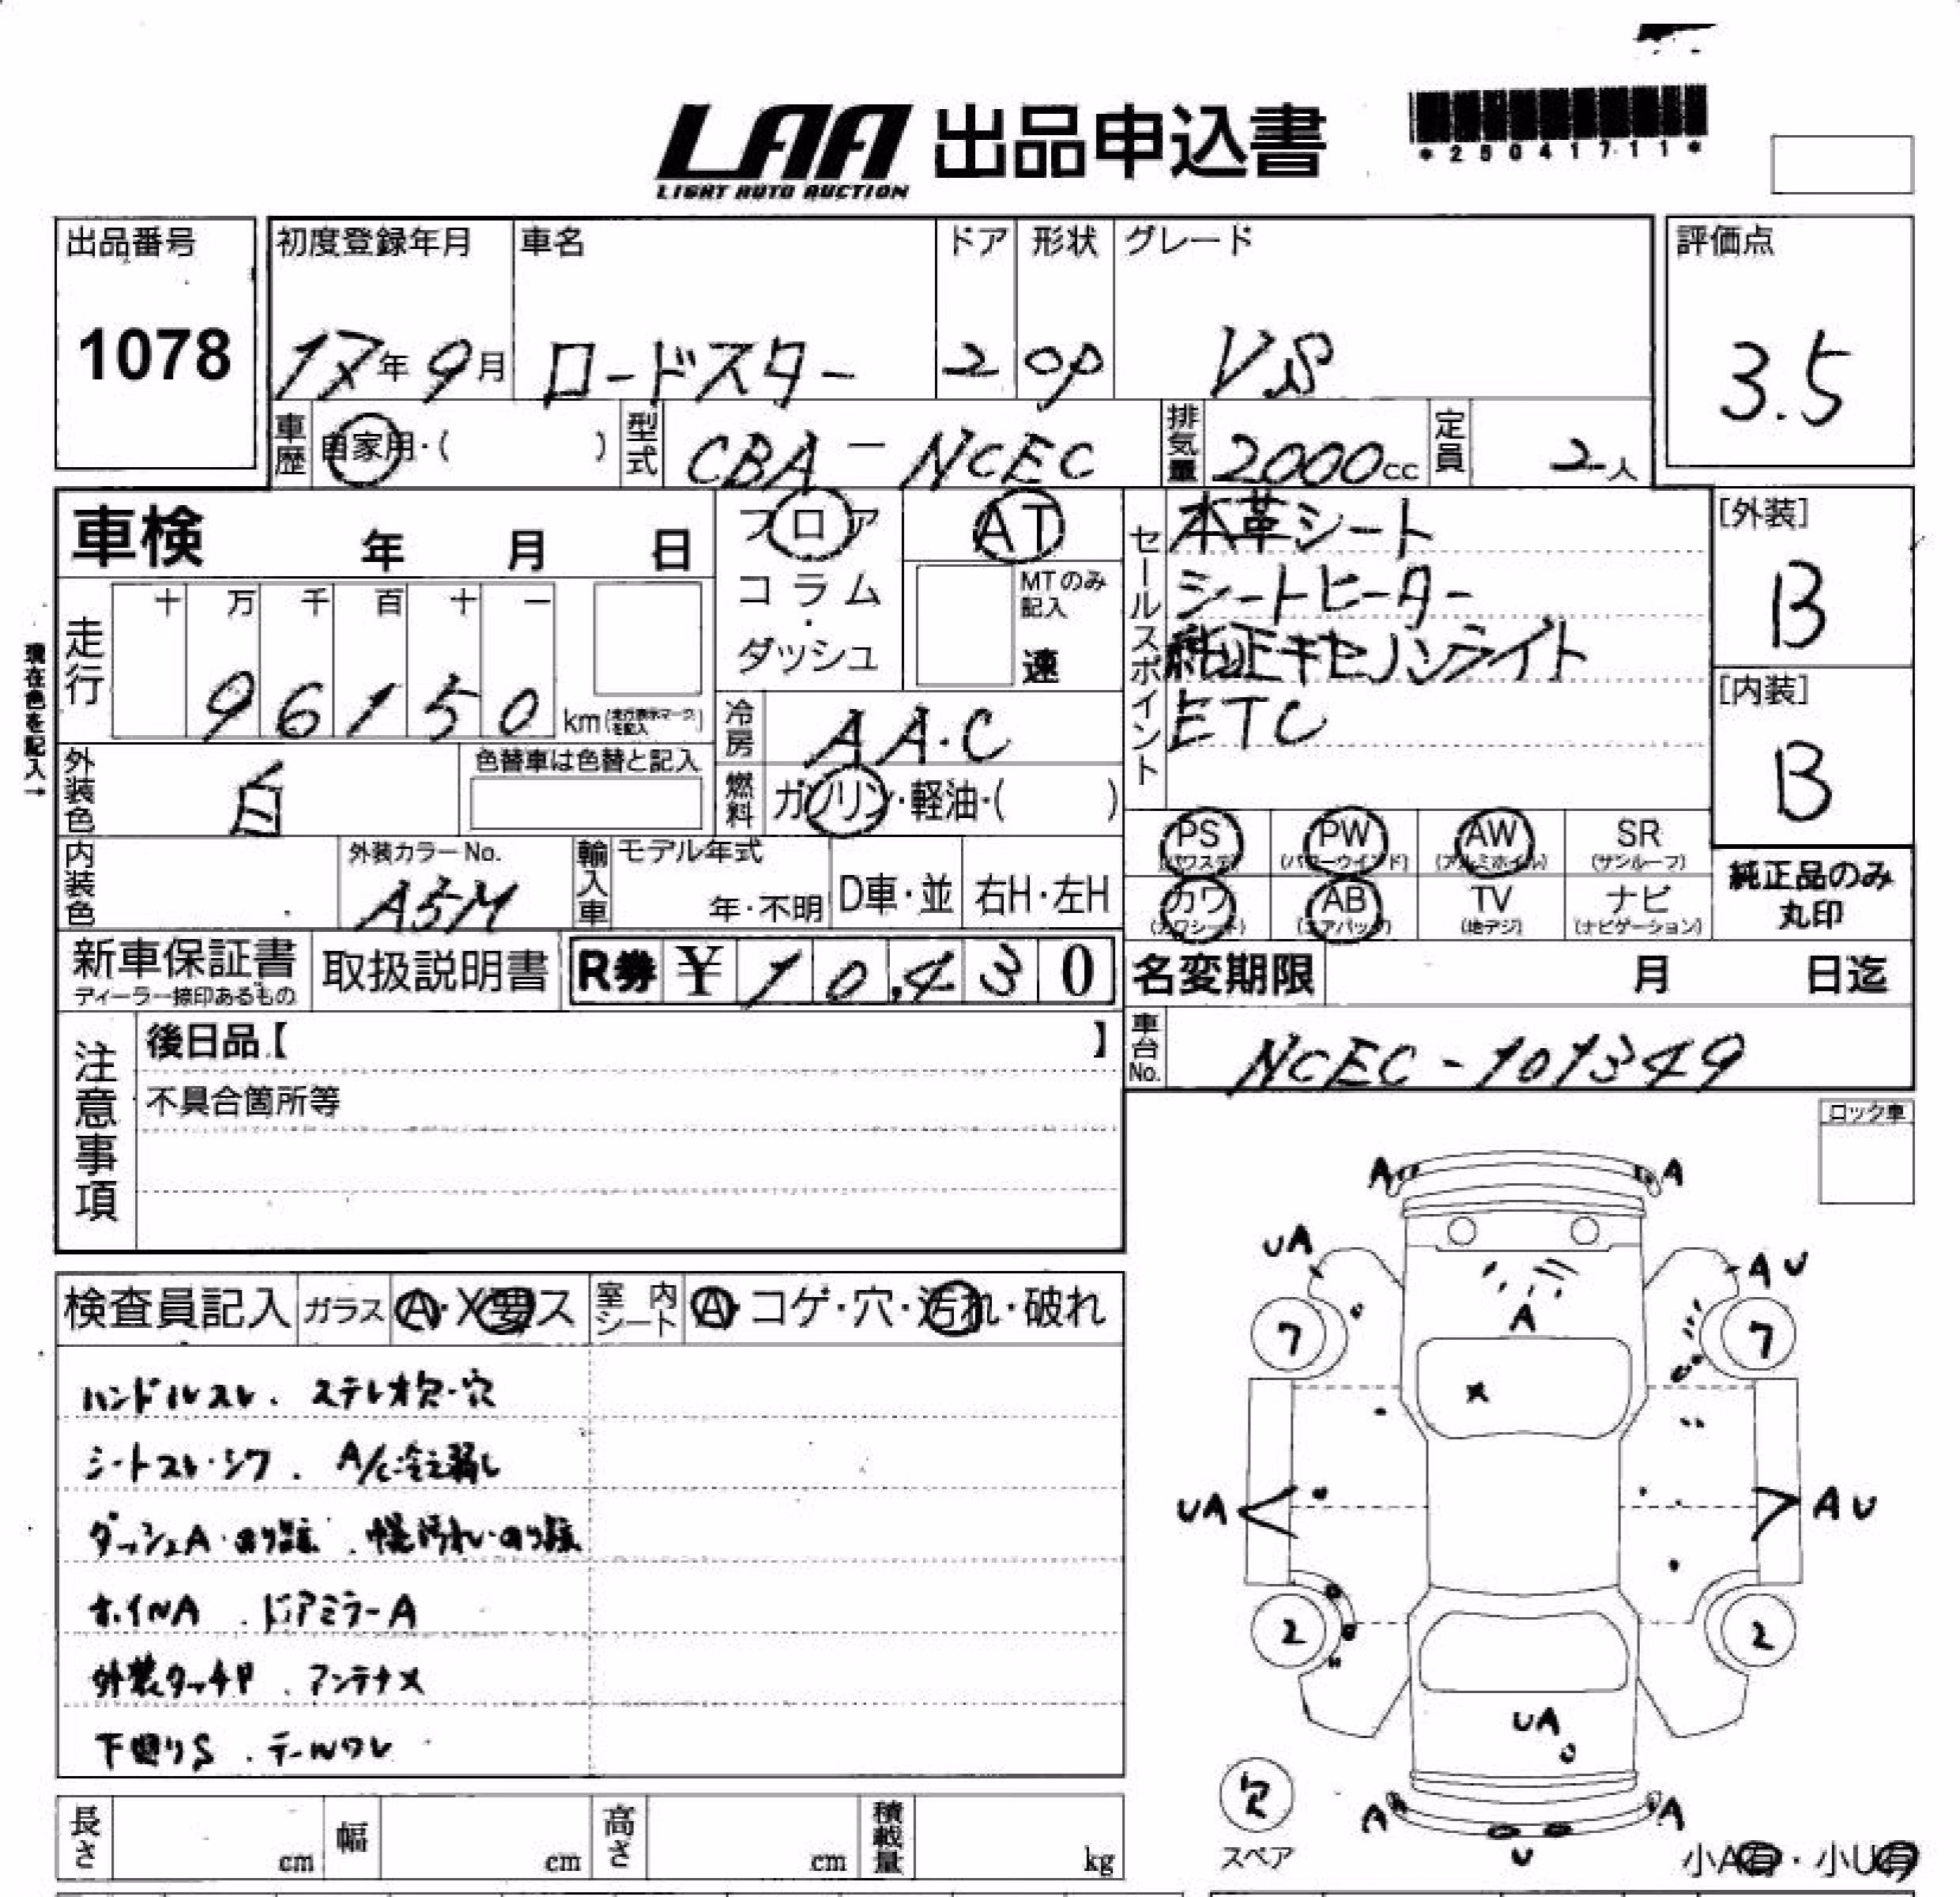 LAA 出品申込書
LIGHT AUTO AUCTION
*25041711*
出品番号 初度登録年月 車名 ドア 形状 グレード 評価点
1078 17年9月 ロードスター 2 OP VS 3.5
車歴 自家用・( ) 型式 CBA-NCEC 排気量 2000cc 定員 2人
車検 年 月 日
フロア
コラム
・
ダッシュ
AT
MTのみ
記入
速
セールスポイント
本革シート
シートヒーター
純正キセノンライト
ETC
[外装]
B
[内装]
B
現在色を記入→
走行 十 万 千 百 十 一
96150 km(走行表示マークを記入)
冷房 AA・C
外装色 白 色替車は色替と記入
燃料 ガソリン・軽油・( )
PS PW AW SR
(パワステ) (パワーウインド) (アルミホイル) (サンルーフ)
カワ AB TV ナビ
(カワシート) (エアバック) (地デジ) (ナビゲーション)
純正品のみ
丸印
内装色 外装カラーNo. A5M
輸入車 モデル年式 年・不明 D車・並 右H・左H
新車保証書 取扱説明書 R券 ¥10,430
ディーラー捺印あるもの
名変期限 月 日迄
車台No. NCEC-101349
注意事項
後日品【 】
不具合箇所等
ロック車
検査員記入 ガラス A・X要ス 室内シート A・コゲ・穴・汚れ・破れ
ハンドルスレ. ステレオ欠・穴
シートスレ・シワ. A/C冷え弱し
ダッシュA・のり跡. 幌汚れ・のり跡
ホイルA. ドアミラーA
外装タッチP. アンテナX
下廻りS. テールワレ
A A
UA AU
A
7 7
X
UA AU
2 2
UA
欠
スペア
A A
U
小A有・小U有
長さ cm 幅 cm 高さ cm 積載量 kg